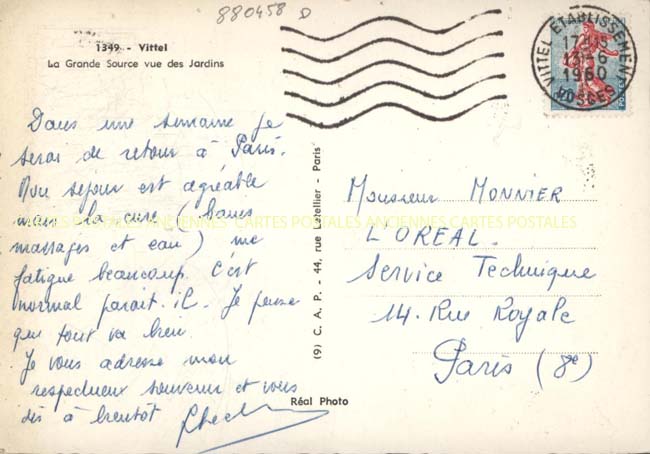 880458 D
1349 - Vittel
La Grande Source vue des Jardins
VITTEL ETABLISSEMENT
17H15
13-6
1960
VOSGES
POSTES
Dans une semaine je
serai de retour à Paris.
Mon séjour est agréable
mais la cure (bains
massages et eau) me
fatigue beaucoup. C'est
normal parait-il. Je pense
que tout va bien.
Je vous adresse mon
respectueux souvenir et vous
dis à bientôt
CARTES POSTALES ANCIENNES CARTES POSTALES ANCIENNES CARTES POSTALES
(9) C. A. P. - 44, rue Letellier - Paris
Réal Photo
Monsieur MONNIER
L'OREAL.
Service Technique
14. Rue Royale
Paris (8e)